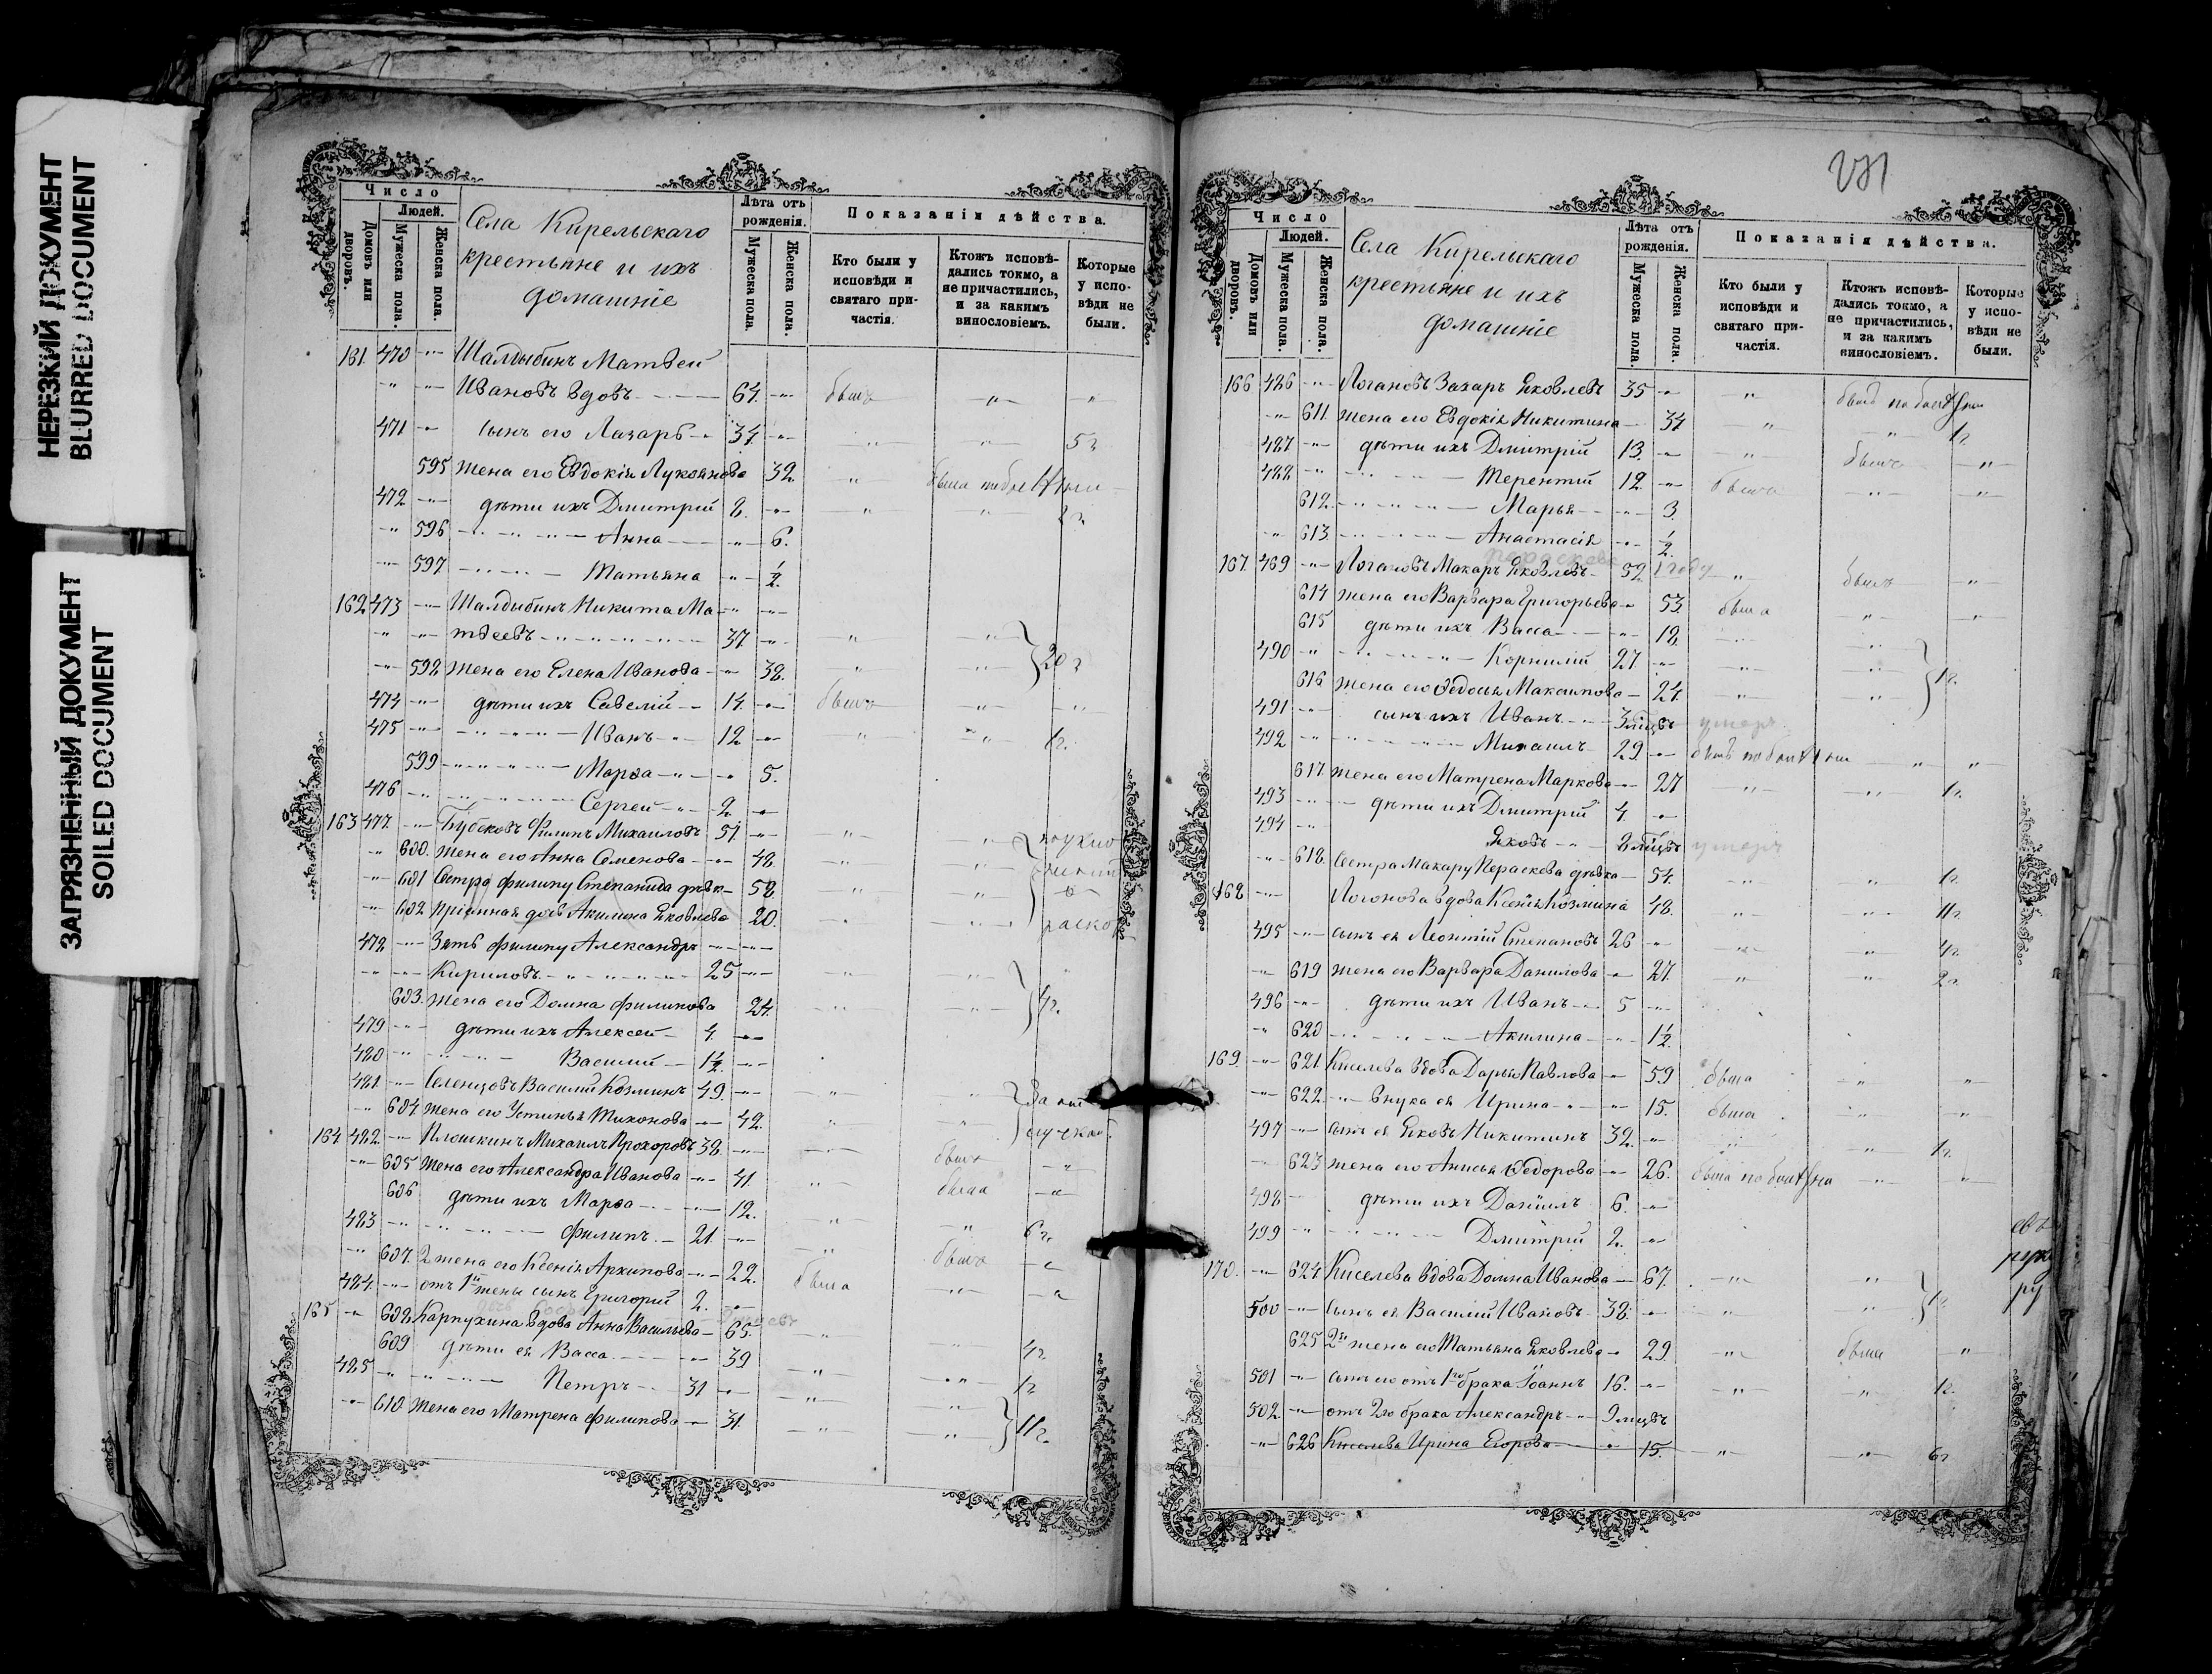 НЕРЕЗКИЙ ДОКУМЕНТ
BLURRED DOCUMENT
ЗАГРЯЗНЕННЫЙ ДОКУМЕНТ
SOILED DOCUMENT
Число
Людей.
Домовъ или дворовъ.
Мужеска пола.
Женска пола.
Села Кирельскаго
крестьяне и ихъ
домашніе
Лѣта отъ рожденія.
Мужеска пола.
Женска пола.
Показанія дѣйства.
Кто были у исповѣди и святаго причастія.
Ктожъ исповѣдались токмо, а не причастились, и за какимъ винословіемъ.
Которые у исповѣди не были.
161. 470 -"- Шалдыбинъ Матвей
-"- -"- Ивановъ вдовъ 64. -"- былъ -"- -"-
471 -"- сынъ его Лазарь 34. -"- " -"- 5 г
595 жена его Евдокія Лукоянова 32. "
472 -"- дѣти ихъ Дмитрій 8. -"- " "
-"- 596 Анна -"- 6.
-"- 597 Татьяна -"- ½
162 473 -"- Шалдыбинъ Никита Ма- -"- -"-
-"- -"- твеевъ 37 -"- " -"-
-"- 598 жена его Елена Иванова -"- 38. " -"- 20 г
474 -"- дѣти ихъ Савелій 14. -"- былъ -"- -"-
475 -"- Иванъ 12 -"- " -"- 1 г.
599 Марѳа -"- 5.
476 -"- Сергей 2. -"-
163 477. -"- Филипъ Михаиловъ 51. -"- -"- -"-
-"- 600. жена его Анна Семенова -"- 48 -"- "
-"- 601 Сестра Филипу Степанида дѣвка 58. " "
-"- 602 пріемная дочь Акилина Яковлева 20. " -"-
478 -"- Зять Филипу Александръ -"- -"-
-"- -"- Кириловъ 25 -"- -"- -"-
603. жена его Домна Филипова 24. -"- -"- 4 г.
479 -"- дѣти ихъ Алексей 4. -"-
480 -"- Василій 1½ -"-
481 -"- Селенцовъ Василій Козминъ 49. -"- " "
-"- 604 жена его Устинья Тихонова -"- 42. " -"-
164 482 -"- Плешкинъ Михаилъ Прохоровъ 38. -"- -"- былъ -"-
-"- 605 жена его Александра Иванова -"- 41. " была -"-
606 дѣти ихъ Марѳа -"- 12. " -"-
483 -"- Филипъ 21. -"- -"- 6 г.
-"- 607. 2 жена его Ксенія Архипова -"- 22. была -"-
484 -"- отъ 1й жены сынъ Григорій 2. -"-
165 -"- 608 Карпухина вдова Анна Васильева 65. -"-
609 дѣти ея Васса -"- 39 " 4 г
485 -"- Петръ 31 -"- -"- 1 г
-"- 610 жена его Матрена Филипова -"- 31. -"- -"- 11 г.
Число
Людей.
Домовъ или дворовъ.
Мужеска пола.
Женска пола.
Села Кирельскаго
крестьяне и ихъ
домашніе
Лѣта отъ рожденія.
Мужеска пола.
Женска пола.
Показанія дѣйства.
Кто были у исповѣди и святаго причастія.
Ктожъ исповѣдались токмо, а не причастились, и за какимъ винословіемъ.
Которые у исповѣди не были.
166 486 -"- Логановъ Захаръ Яковлевъ 35 -"- -"-
-"- 611. жена его Евдокія Никитина 34 " -"- 1 г
487 -"- дѣти ихъ Дмитрій 13. -"- -"- былъ -"-
488 -"- Терентій 12. -"- -"- -"-
612. Марья -"- 3.
-"- 613. Анастасія -"- ½
167. 489 -"- Логановъ Макаръ Яковлевъ 52. -"- былъ -"-
614 жена его Варвара Григорьева 53. была " "
615 дѣти ихъ Васса -"- 18.
490 -"- Корнилій 27 -"- -"- -"-
616 жена его Ѳедосья Максимова 24. -"- " 1 г.
491 -"- сынъ ихъ Иванъ 3 мцвъ умеръ
492 -"- Михаилъ 29. -"- -"- "
617. жена его Матрена Маркова -"- 27 -"- -"- 1 г.
493 -"- дѣти ихъ Дмитрій 4. -"-
494 -"- Яковъ 2 мцвъ умеръ
-"- 618. Сестра Макару Параскева дѣвка 54. -"- " 1 г.
168. -"- Логонова вдова Ксенія Козмина 48. -"- -"- 11 г.
495 -"- сынъ ея Леонтій Степановъ 26 -"- -"- " 4 г.
-"- 619 жена его Варвара Данилова -"- 27. " " 2 г.
496 -"- дѣти ихъ Иванъ 5 -"-
-"- 620 Акилина -"- 1½
169. -"- 621 Киселева вдова Дарья Павлова -"- 59 была -"- "
-"- 622 внука ея Ирина -"- 15. была -"- -"-
497 -"- сынъ ея Яковъ Никитинъ 32. -"- -"- 1 г.
623 жена его Анисья Ѳедорова -"- 26. -"- -"-
498 -"- дѣти ихъ Даніилъ 6. -"-
499 -"- Дмитрій 2. -"-
170. -"- 624 Киселева вдова Домна Иванова 67. -"- "
500 -"- Сынъ ея Василій Ивановъ 38. -"- -"- " 1 г
625 2я жена его Татьяна Яковлева 29. -"- была -"-
501 -"- сынъ его отъ 1го брака Іоаннъ 16. -"- -"- " 1 г.
502. -"- отъ 2го брака Александръ 9 мцвъ
-"- 626 Киселева Ирина Егорова -"- 15. -"- -"- 6 г